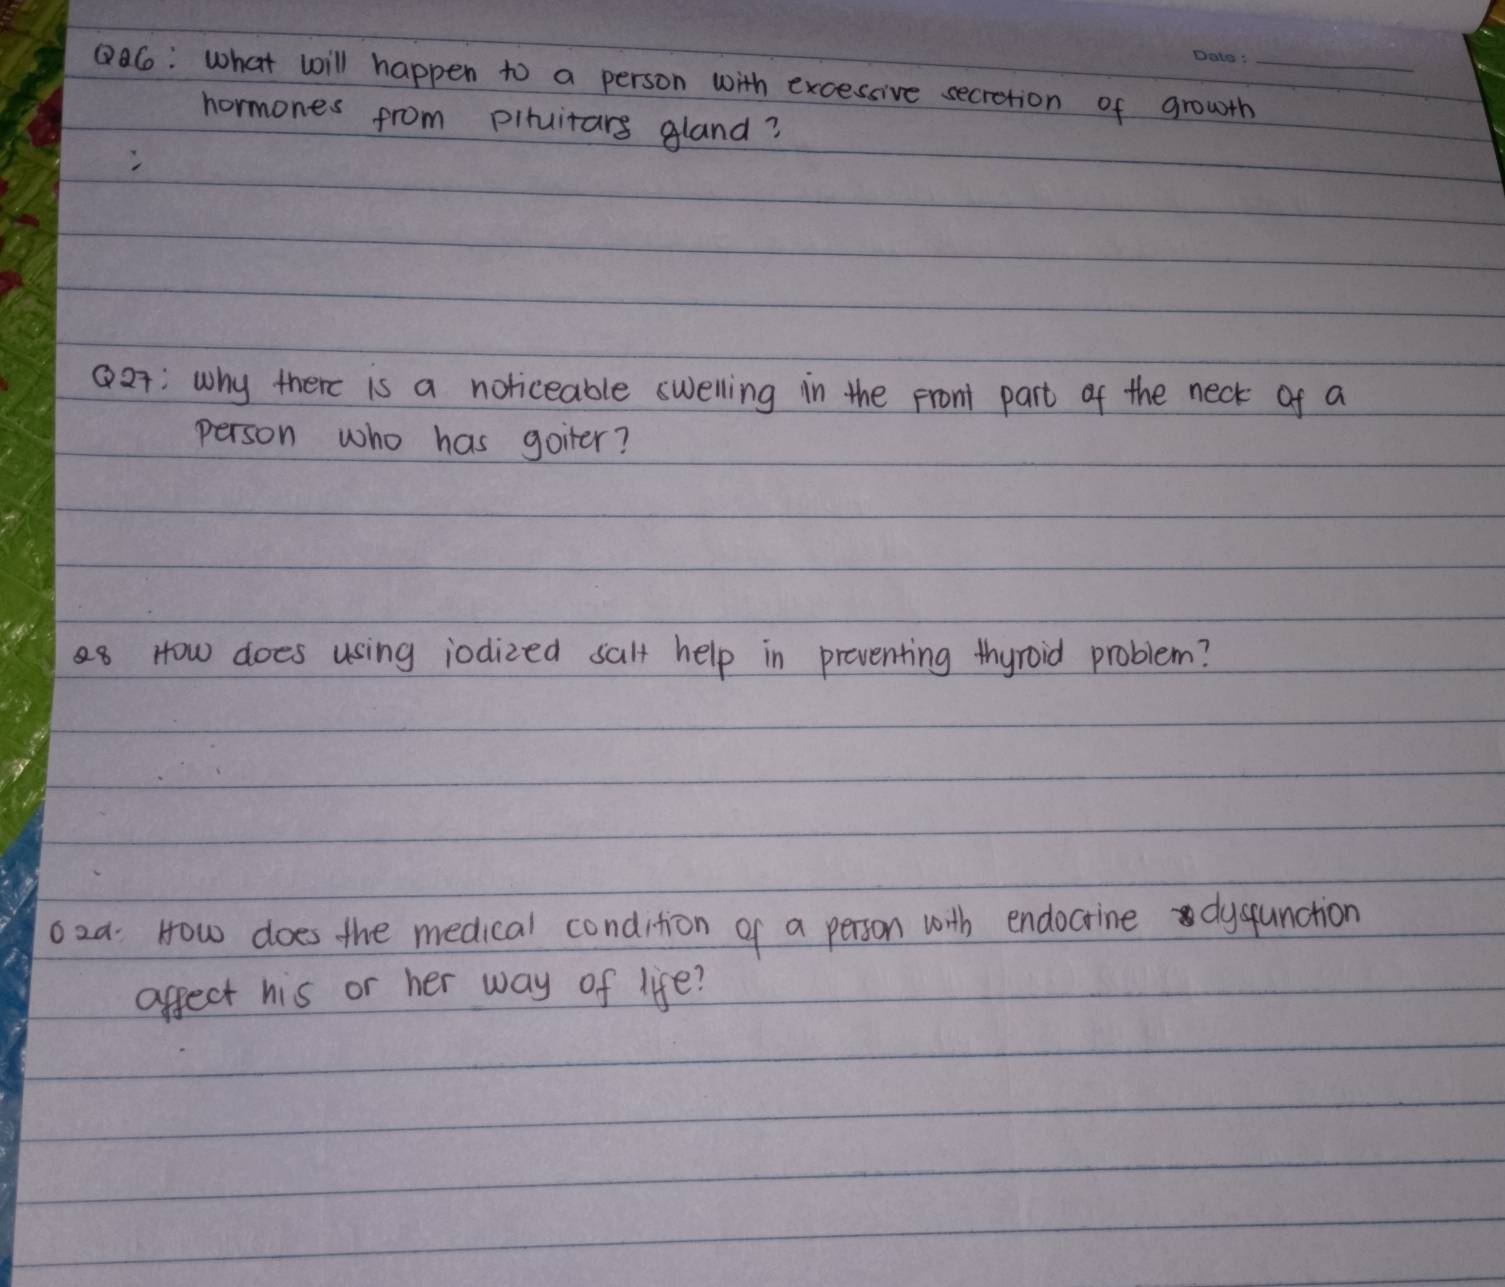 Date:
Q26: What will happen to a person with excessive secretion of growth
hormones from pituitary gland?
:
Q27: Why there is a noticeable swelling in the front part of the neck of a
person who has goiter?
28 How does using iodized salt help in preventing thyroid problem?
Q29. How does the medical condition of a person with endocrine dysfunction
affect his or her way of life?